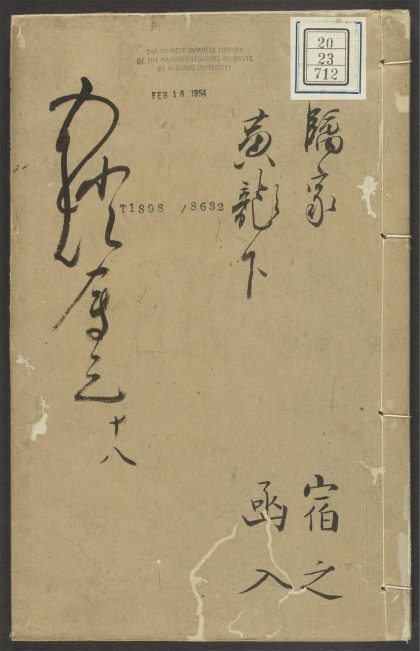 THE CHINESE-JAPANESE LIBRARY
OF THE HARVARD-YENCHING INSTITUTE
AT HARVARD UNIVERSITY
FEB 16 1954
20
23
712
臨家
黄龍下
宿之
函入
T1898 /8632
會元
十八